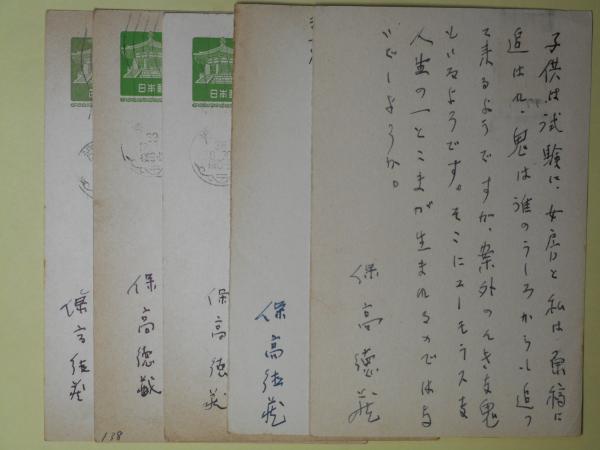 子供は試験に、女房と私は原稿に
追はれ、鬼は誰のうしろからも追つ
て来るようですが、案外のんきな鬼
もいるようです。そこにユーモラスな
人生の一とこまが生まれるのではな
いでしようか。
保高徳蔵
保高徳蔵
保高徳蔵
保高徳蔵
保高徳蔵
日本郵
日本郵
日本郵
138